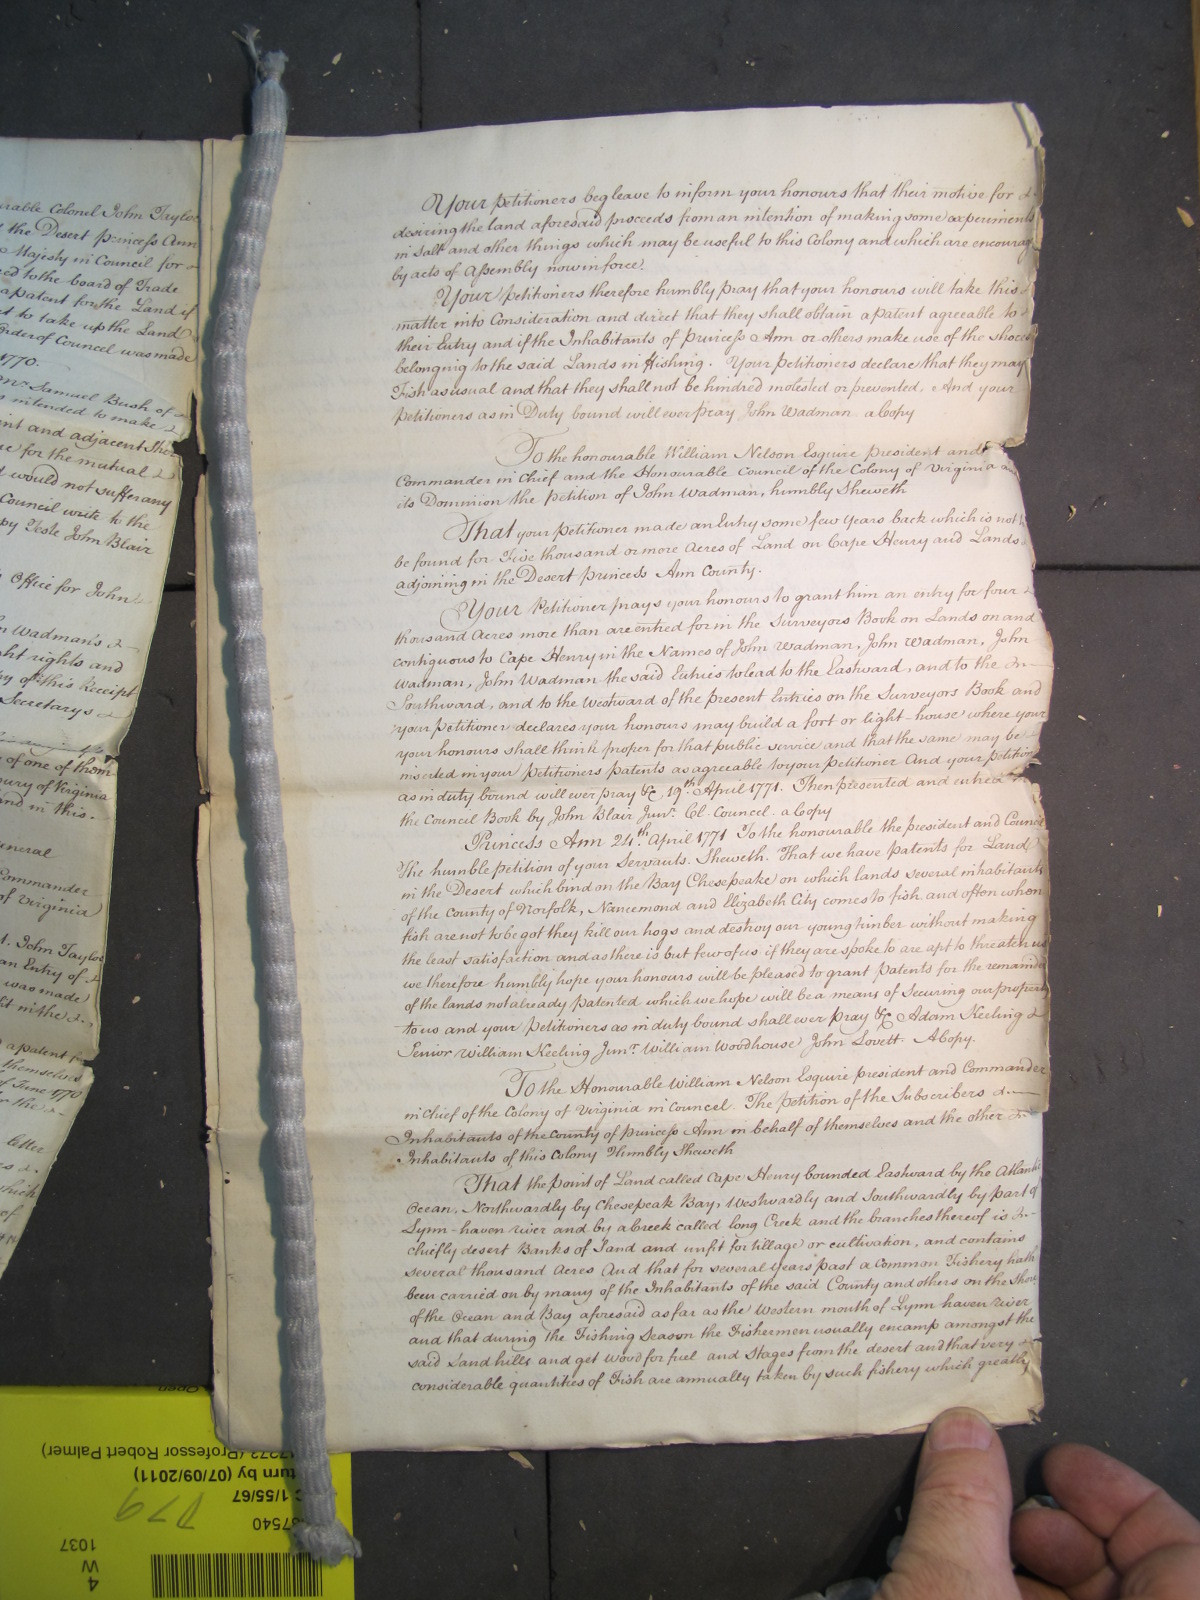 rable Colonel John Taylor
the Desert princess Ann
Majesty in Council for
ed to the board of Trade
a patent for the Land if
to take up the Land
order of Council was made
1770.
Mr. Samuel Bush of
intended to make
int and adjacent
for the mutual
would not suffer any
Council write to the
Teste John Blair
Office for John
Wadman's
ht rights and
of this Receipt
Secretarys
of one of them
of Virginia
and in this.
eneral
Commander
of Virginia
John Taylor
an Entry of
was made
a patent for
themselves
of June 1770
letter
which
of
Your petitioners beg leave to inform your honours that their motive for
desiring the land aforesaid proceeds from an intention of making some experiments
in salt and other things which may be useful to this Colony and which are encourag
by acts of Assembly now in force.
Your petitioners therefore humbly pray that your honours will take this
matter into Consideration and direct that they shall obtain a patent agreeable to
their Entry and if the Inhabitants of Princess Ann or others make use of the shores
belonging to the said Lands in fishing. Your petitioners declare that they may
Fish as usual and that they shall not be hindred molested or prevented. And your
Petitioners as in Duty bound will ever pray John Wadman a Copy
To the honourable William Nelson Esquire president and
Commander in Chief and the Honourable Council of the Colony of Virginia and
its Dominion the petition of John Wadman, humbly Sheweth
That your petitioner made an Entry some few years back which is not
be found for Five thousand or more Acres of Land on Cape Henry and Lands
adjoining in the Desert princess Ann County.
Your Petitioner prays your honours to grant him an entry for four
thousand Acres more than are entred for in the Surveyors Book on Lands on and
contiguous to Cape Henry in the Names of John Wadman, John Wadman, John
Wadman, John Wadman the said Entries to lead to the Eastward, and to the
Southward, and to the Westward of the present Entries on the Surveyors Book and
your petitioner declares your honours may build a fort or light-house where your
your honours shall think proper for that public service and that the same may be
inserted in your Petitioners patents as agreeable to your Petitioner And your petition
as in duty bound will ever pray &c 19th. April 1771. Then presented and entred in
the Council Book by John Blair Junr. Cl. Council. a Copy
Princess Ann 24th April 1771 To the honourable the president and Council
The humble petition of your Servants. Sheweth. That we have patents for Land
in the Desert which bind on the Bay Chesepeake on which lands several inhabitants
of the County of Norfolk, Nancemond and Elizabeth City comes to fish and often when
fish are not to be got they kill our hogs and destroy our young timber without making
the least satisfaction and as there is but few of us if they are spoke to are apt to threaten us
we therefore humbly hope your honours will be pleased to grant Patents for the remaind
of the lands not already patented which we hope will be a means of securing our property
to us and your Petitioners as in duty bound shall ever pray &c Adam Keeling
Senior William Keeling Junr. William Woodhouse John Lovett. A Copy.
To the Honourable William Nelson Esquire president and Commander
in Chief of the Colony of Virginia in Councel. The petition of the Subscribers
Inhabitants of the County of princess Ann in behalf of themselves and the other
Inhabitants of this Colony Humbly Sheweth
That the point of Land called Cape Henry bounded Eastward by the Atlantic
Ocean, Northwardly by Chesepeak Bay, Westwardly and Southwardly by part of
Lynn-haven river and by a Creek called long Creek and the branches thereof is
chiefly desert Banks of Sand and unfit for tillage or cultivation, and contains
several thousand Acres And that for several years past a Common Fishery hath
been carried on by many of the Inhabitants of the said County and others on the Shore
of the Ocean and Bay aforesaid as far as the Western mouth of Lynn haven river
and that during the Fishing Season the Fishermen usually encamp amongst the
said Sand hills and get Wood for fuel and Stages from the desert and that very
considerable quantities of Fish are annually taken by such fishery which greatly
Open
(Professor Robert Palmer)
turn by (07/09/2011)
1/55/67
D79
37540
1037
W
4